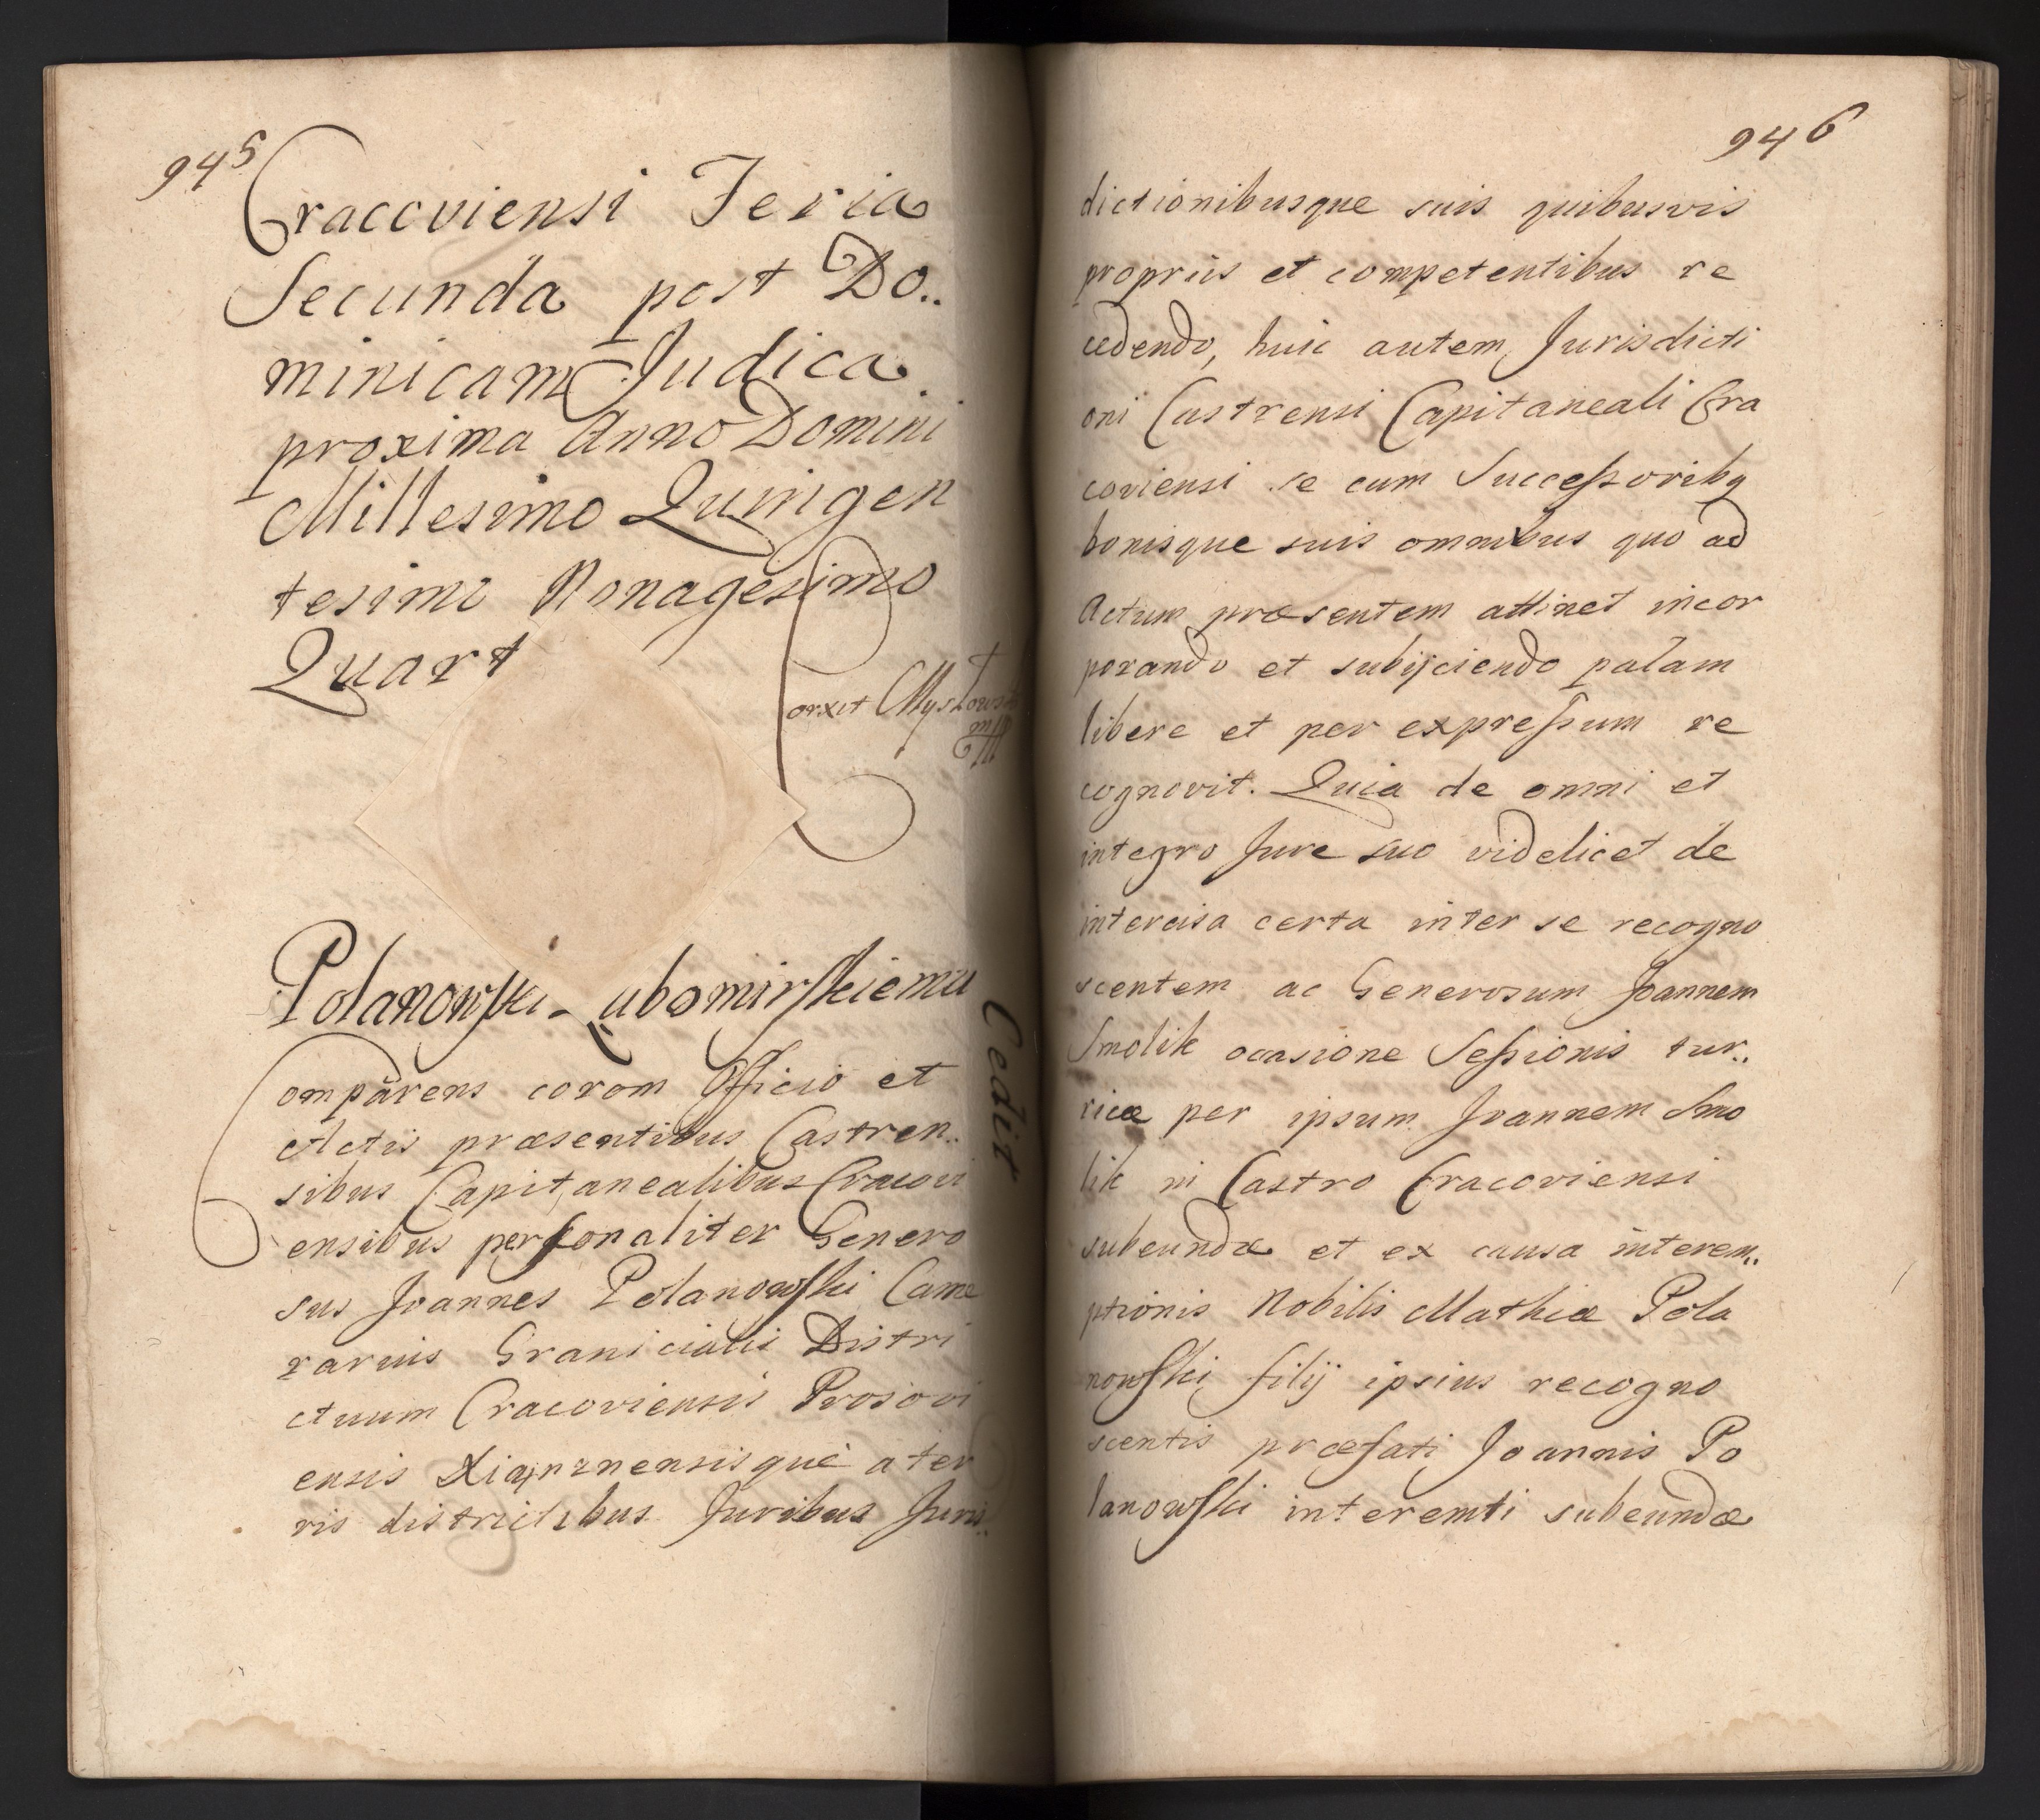 945
Cracoviensi Feria
Secunda post Do..
minicam Judica
proxima Anno Domini
Millesimo Quingen
tesimo Nonagesimo
Quart
Correxit
Polanowski Lubomirskiemu
Cedit
Comparens corom Officio et
Actis præsentibus Castren..
sibus Capitanealibus Cracovi
ensibus personaliter Genero
sus Joannes Polanowski Came
rarius Graniciatis Distri
ctuum Cracoviensis Prosovi
ensis Xiąznensisque a ter
ris districtibus Juribus Juris..
946
dictionibusque suis quibusvis
propriis et competentibus re
cedendo, huic autem Jurisdicti
oni Castrensi Capitaneali Cra
coviensi se cum Successoribq
bonisque suis omnibus quo ad
Actum præsentem attinet incor
porando et subijciendo palam
libere et per expressum re
cognovit. Quia de omni et
integro Jure suo videlicet de
intercisa certa inter se recogno
scentem ac Generosum Joannem
Smolik ocasione Sessionis tur..
ricæ per ipsum Joannem Smo
lik in Castro Cracoviensi
subeundæ et ex causa interem..
ptionis Nobilis Mathiæ Pola
nowski filij ipsius recogno
scentis præfati Joannis Po
lanowski interemti subeundæ